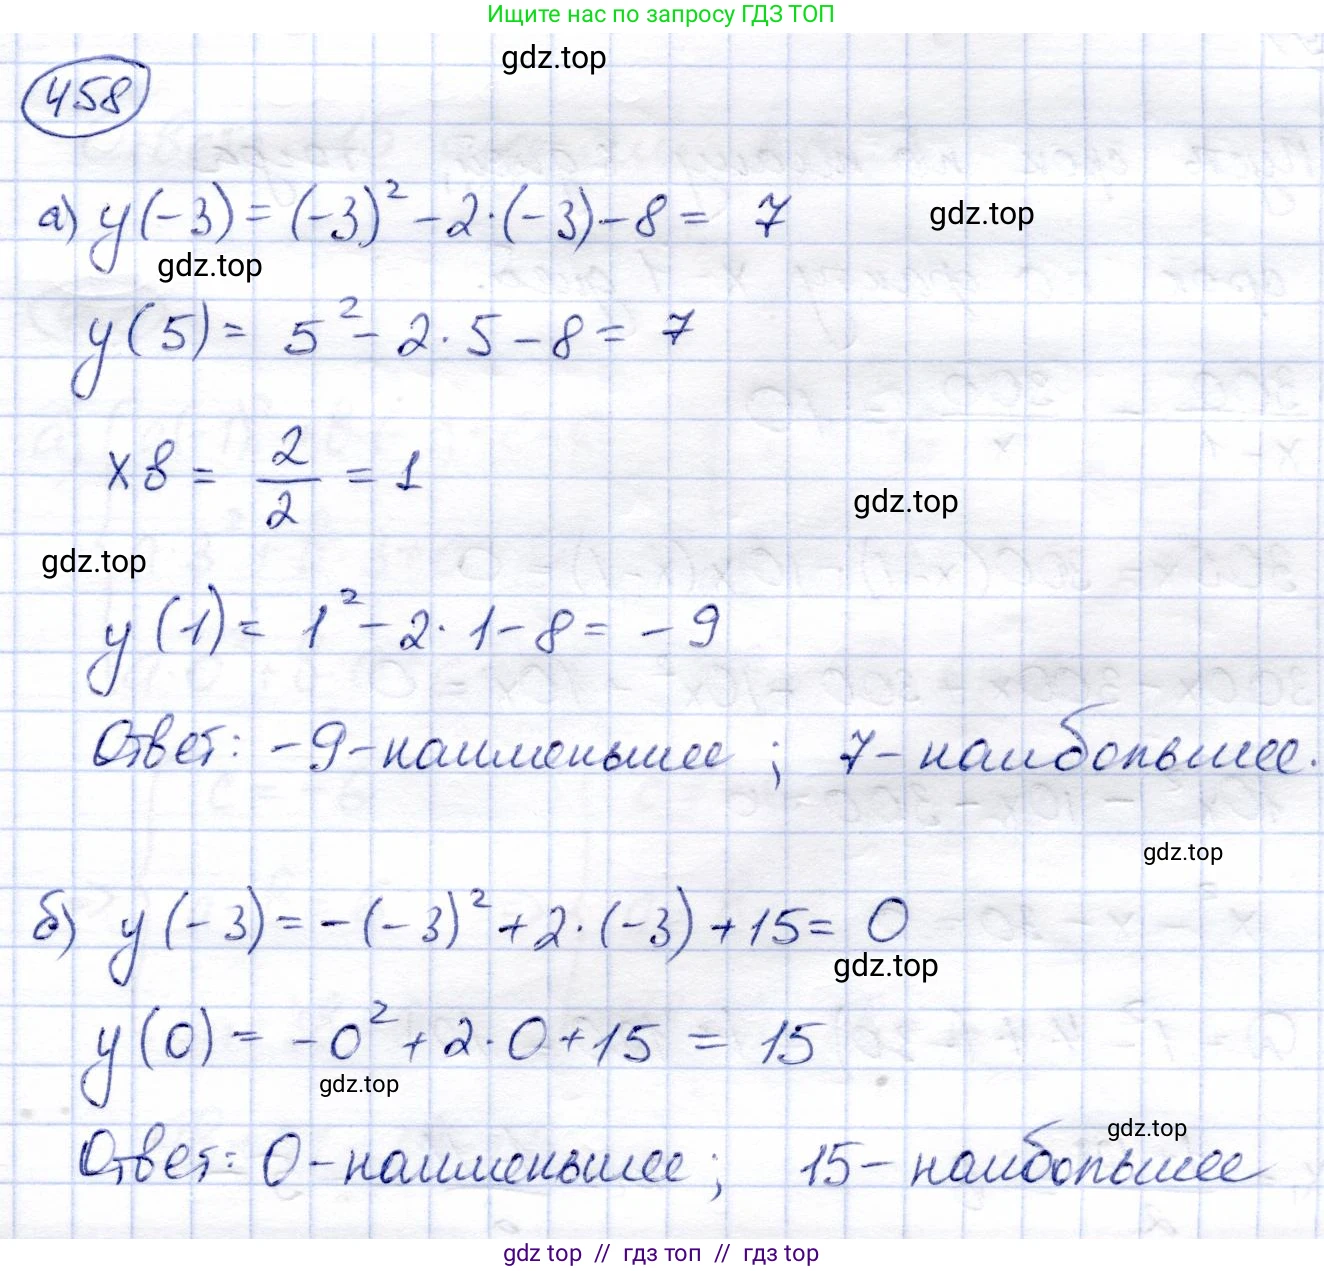 Ищите нас по запросу ГДЗ ТОП
gdz.top
458
а) y(-3) = (-3)² - 2·(-3) - 8 = 7
gdz.top
gdz.top
y(5) = 5² - 2·5 - 8 = 7
xв = 2/2 = 1
gdz.top
gdz.top
y(1) = 1² - 2·1 - 8 = -9
Ответ: -9 - наименьшее; 7 - наибольшее.
gdz.top
б) y(-3) = -(-3)² + 2·(-3) + 15 = 0
gdz.top
y(0) = -0² + 2·0 + 15 = 15
gdz.top
gdz.top
Ответ: 0 - наименьшее; 15 - наибольшее
gdz top // гдз топ // гдз top